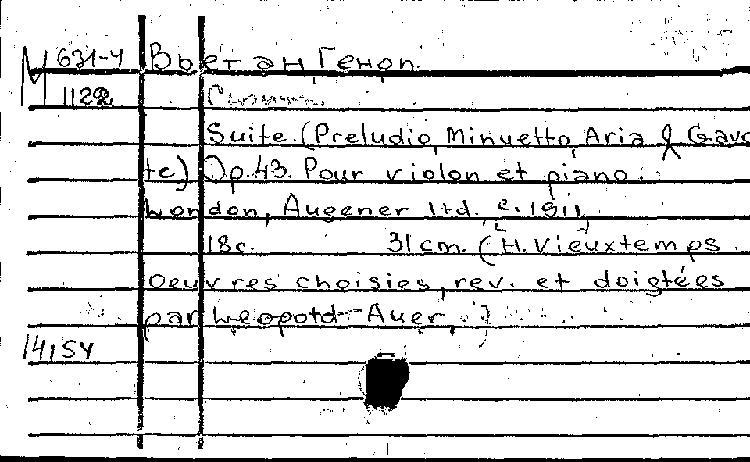 М 631-4 Вьетан, Генри.
1122
Suite (Preludio, Minuetto, Aria & Gavo
te) Op. 43. Pour violon et piano.
London, Augener ltd. c. 1911,
18c. 31 cm. (H. Vieuxtemps
Oeuvres choisies, rev. et doigtées
par Leopold Auer.)
14154